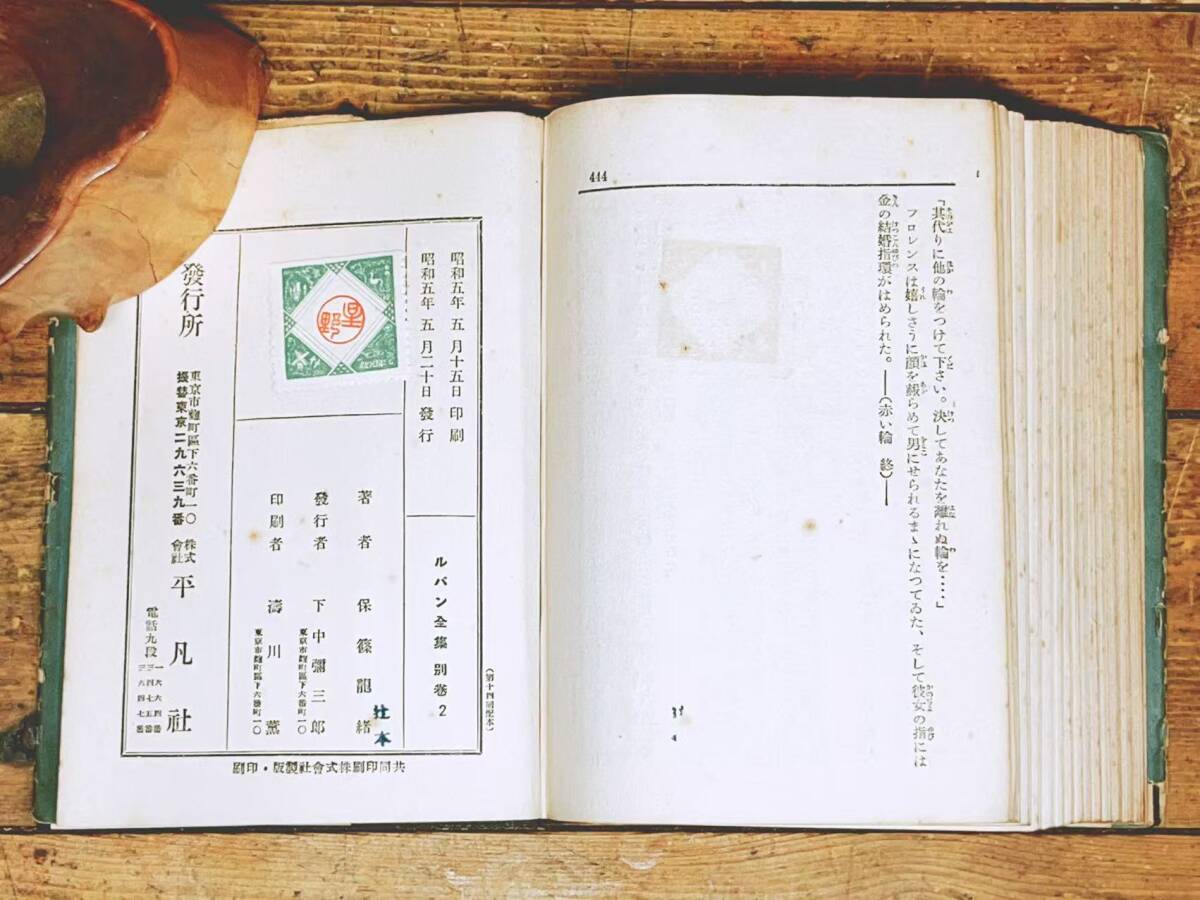 444
「其代りに他の輪をつけて下さい。決してあなたを離れぬ輪を‥‥」
フロレンスは嬉しさうに顔を赧らめて男にせられるまゝになつてゐた、そして彼女の指には
金の結婚指環がはめられた。――(赤い輪 終)――
昭和五年 五月十五日 印刷
昭和五年 五月二十日 發行
ルパン全集 別卷2
(第十四回配本)
著者 保篠龍緒
發行者 下中彌三郎
東京市麴町區下六番町一〇
印刷者 濤川薰
東京市麴町區下六番町一〇
星野
辻本
發行所
東京市麴町區下六番町一〇
振替東京二九六三九番
株式會社 平凡社
電話九段
共同印刷株式會社製版・印刷